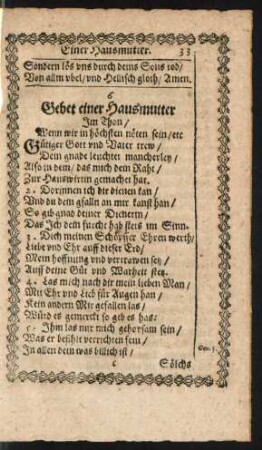 Einer Hausmutter. 33
Sondern lös vns durch deins Sons tod/
Von allm vbel/ vnd Hellisch gloth/ Amen.
6
Gebet einer Hausmutter
Im Thon/
Wenn wir in höchsten nöten sein/ etc
Gütiger Gott vnd Vater trew/
Dein gnade leuchtet mancherley/
Also in dem/ das mich dein Raht/
Zur Hauswirtin gemachet hat.
2. Dorinnen ich dir dienen kan/
Vnd du dein gfalln an mir kanst han/
So gib gnad deiner Dienerin/
Das Ich dein furcht hab stets im Sinn.
3. Dich meinen Schöpffer Ehren werth/
Liebe vnd Ehr auff dieser Erd/
Mein hoffnung vnd vertrawen sey/
Auff deine Güt vnd Warheit stey.
4. Las mich nach dir mein lieben Man/
Mit Ehr vnd Lieb für Augen han/
Kein andern Mir gefallen las/
Würd es gemerckt so geb es has:
5. Ihm las nur mich gehorsam sein/
Was er befihlt verrichten fein/
In allen dem was billich ist/
Gen. 3.
c Sölchs